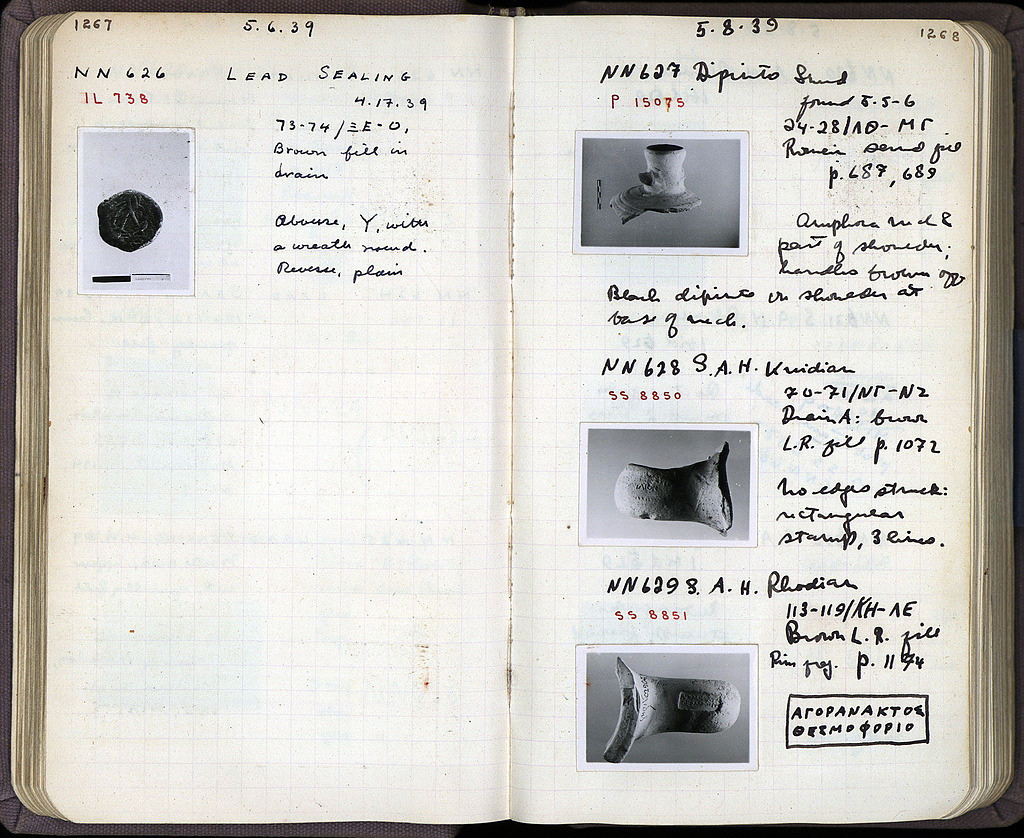 1267
5.6.39
NN 626 LEAD SEALING
IL 738
4.17.39
73-74/ΞE-O,
Brown fill in
drain
Obverse, Y, with
a wreath round.
Reverse, plain
5.8.39
1268
NN627 Dipinto Sherd
P 15075
found 5-5-6
24-28/ΛΘ-ΜΓ
Roman sand fill
p. 687, 689
Amphora neck &
part of shoulder;
handles broken off
Black dipinto on shoulder at
base of neck.
NN628 S.A.H. Knidian
SS 8850
70-71/ΝΓ-ΝΖ
Drain A: brown
L.R. fill p. 1072
No edges struck:
rectangular
stamp, 3 lines.
NN629 S.A.H. Rhodian
SS 8851
113-119/ΚΗ-ΛΕ
Brown L.R. fill
Rim frg. p. 1194
ΑΓΟΡΑΝΑΚΤΟΣ
ΘΕΣΜΟΦΟΡΙΟ